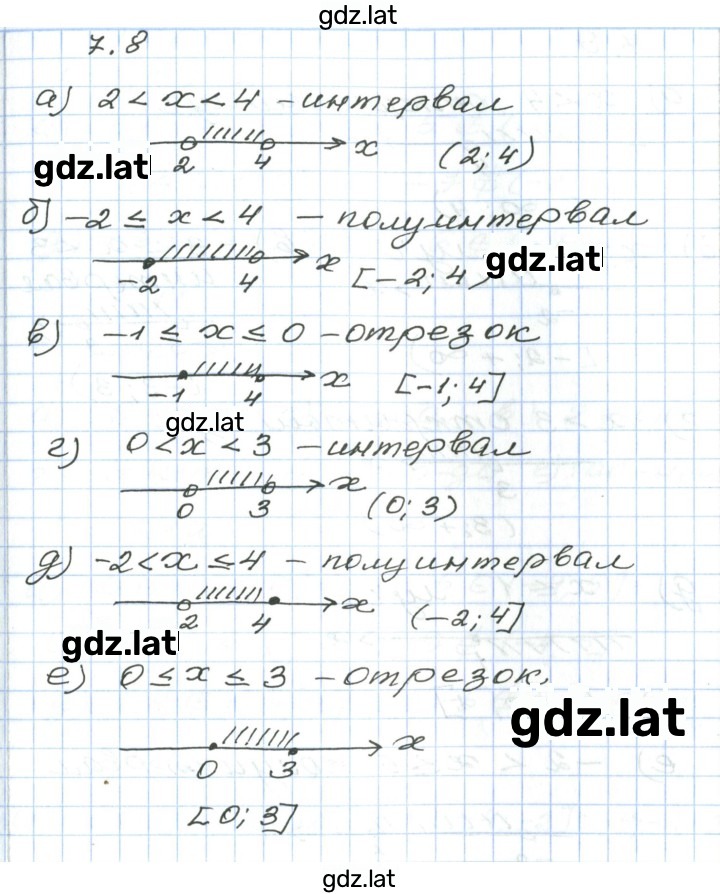 gdz.lat
7.8
а) 2 < x < 4 – интервал
2 4 x (2; 4)
gdz.lat
б) –2 ≤ x < 4 – полуинтервал
–2 4 x [–2; 4)
gdz.lat
в) –1 ≤ x ≤ 0 – отрезок
–1 4 x [–1; 4]
gdz.lat
г) 0 < x < 3 – интервал
0 3 x (0; 3)
д) –2 < x ≤ 4 – полуинтервал
2 4 x (–2; 4]
gdz.lat
е) 0 ≤ x ≤ 3 – отрезок.
gdz.lat
0 3 x
[0; 3]
gdz.lat